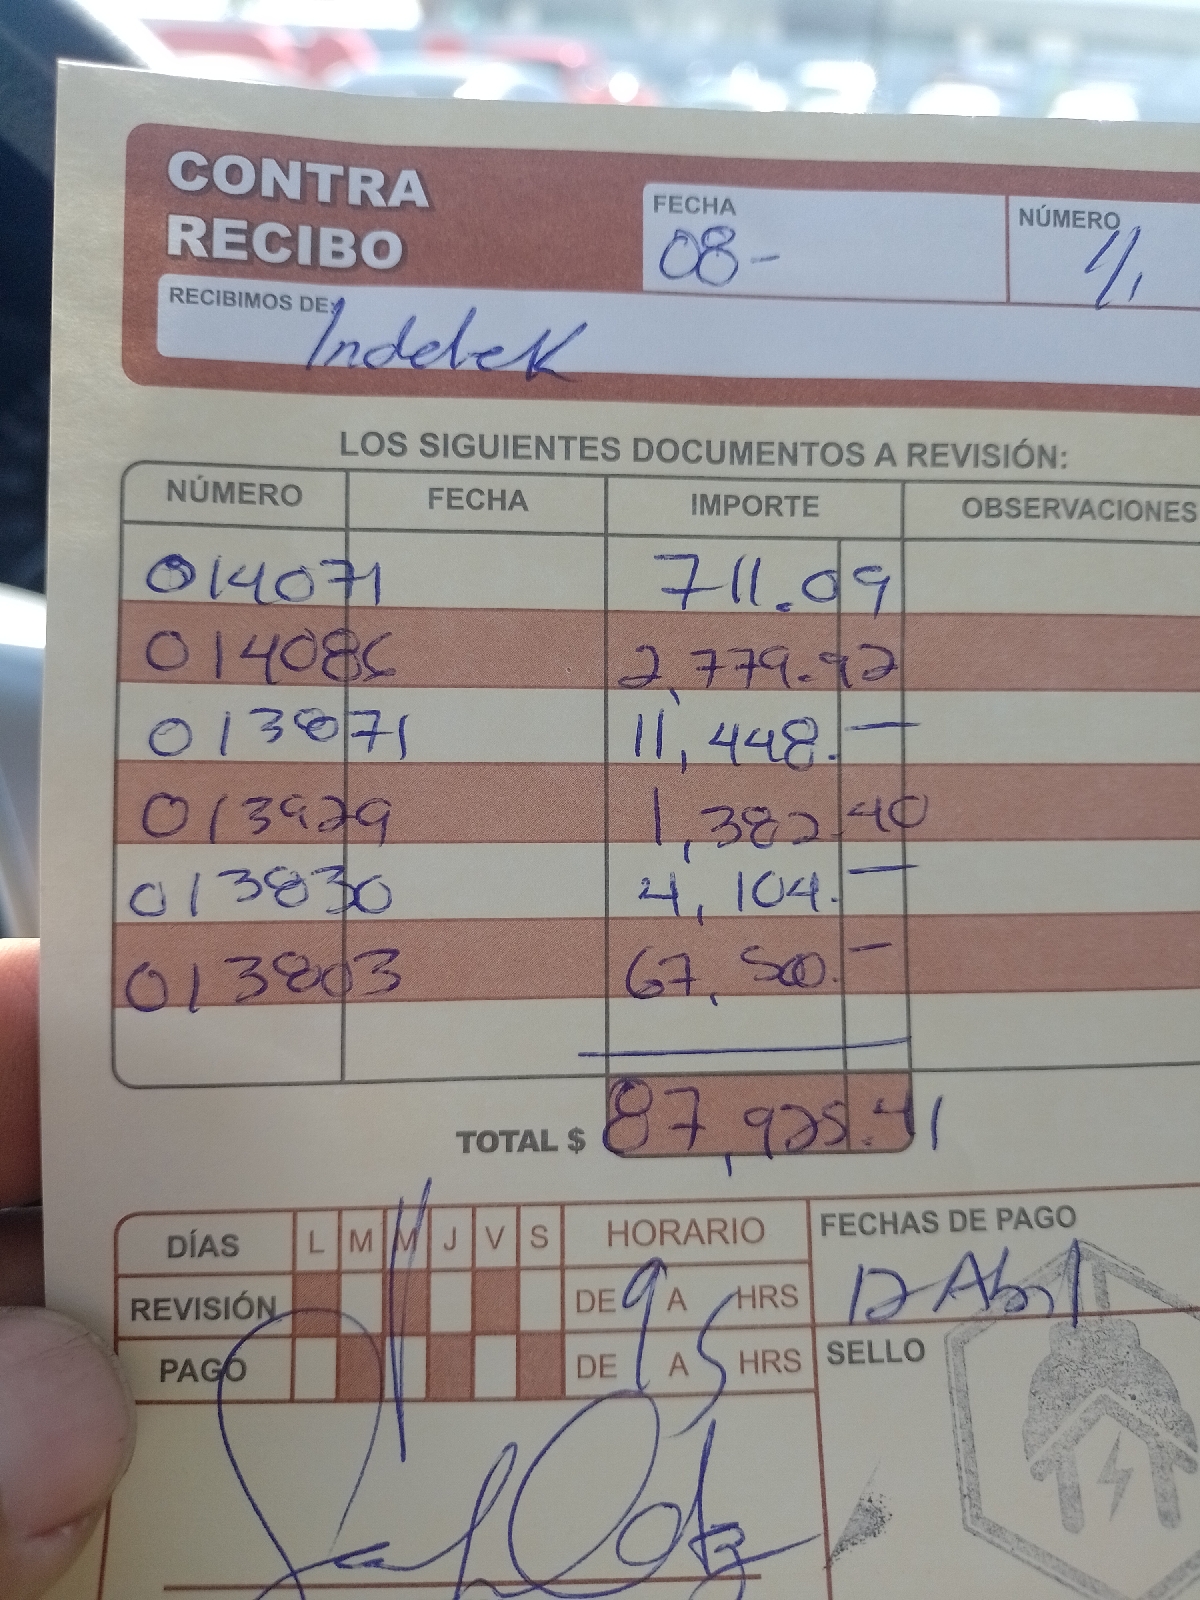 CONTRA
RECIBO
FECHA
08-
NÚMERO
1/1
RECIBIMOS DE:
Indelek
LOS SIGUIENTES DOCUMENTOS A REVISIÓN:
NÚMERO FECHA IMPORTE OBSERVACIONES
014071 711.09
014086 2,779.92
013871 11,448.—
013929 1,382.40
013830 4,104.—
013803 67,500.—
TOTAL $ 87,925.41
DÍAS L M M J V S HORARIO
REVISIÓN DE 9 A 5 HRS
PAGO DE A HRS
FECHAS DE PAGO
12 Abril
SELLO